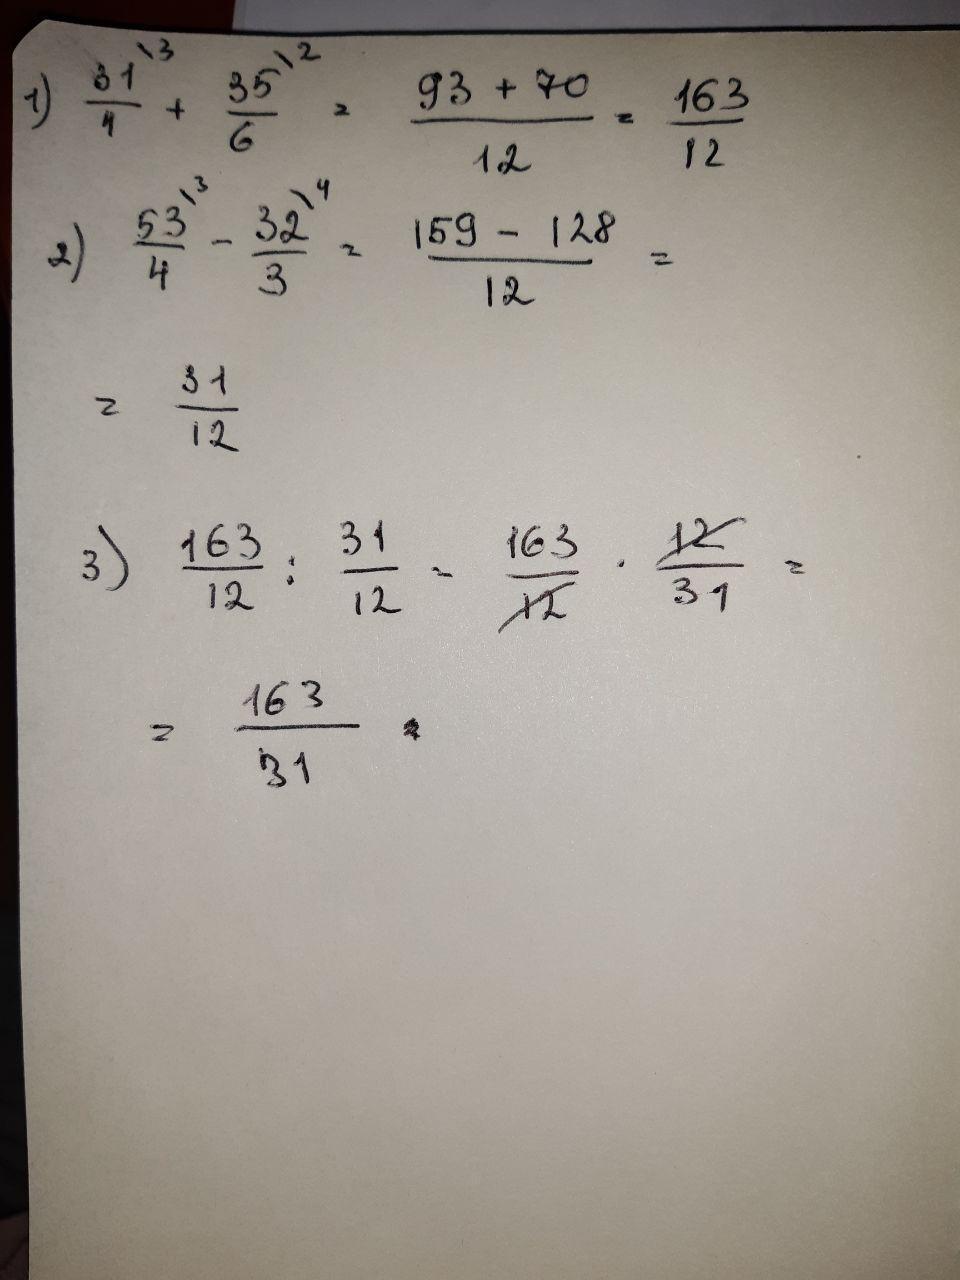 1) 31\3/4 + 35\2/6 = 93 + 70/12 = 163/12
2) 53\3/4 - 32\4/3 = 159 - 128/12 =
= 31/12
3) 163/12 : 31/12 = 163/12 · 12/31 =
= 163/31